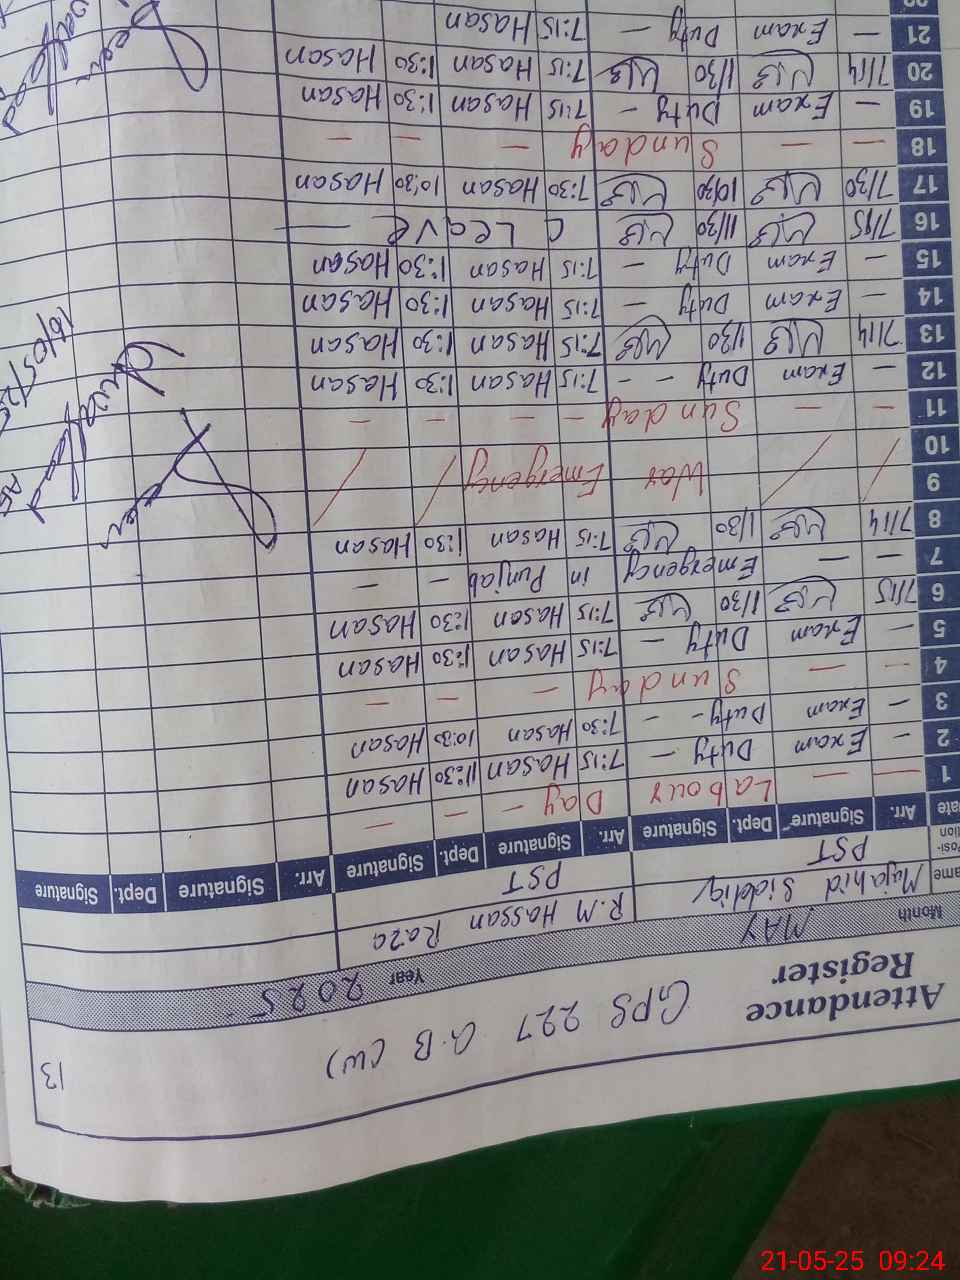 13
Attendance Register GPS 227 G.B (W)
Month MAY Year 2025
Name Mujahid Siddiq R.M Hassan Raza
Position PST PST
Date Arr. Signature Dept. Signature Arr. Signature Dept. Signature Arr. Signature Dept. Signature
1 — — Labour Day — — —
2 — Exam Duty — 7:15 Hasan 11:30 Hasan
3 — Exam Duty - - 7:30 Hasan 10:30 Hasan
4 — — Sunday — — —
5 — Exam Duty — 7:15 Hasan 1:30 Hasan
6 7/15 1/30 7:15 Hasan 1:30 Hasan
7 — — Emergency in Punjab — —
8 7/14 1/30 7:15 Hasan 1:30 Hasan
9 War Emergency
10
11 — — Sunday — — —
12 — Exam Duty - - 7:15 Hasan 1:30 Hasan
13 7/14 1/30 7:15 Hasan 1:30 Hasan
14 — Exam Duty — 7:15 Hasan 1:30 Hasan
15 — Exam Duty — 7:15 Hasan 1:30 Hasan
16 7/15 11/30 C Leave
17 7/30 10/30 7:30 Hasan 10:30 Hasan
18 — — Sunday — — —
19 — Exam Duty — 7:15 Hasan 1:30 Hasan
20 7/14 1/30 7:15 Hasan 1:30 Hasan
21 — Exam Duty — 7:15 Hasan
22
21-05-25 09:24